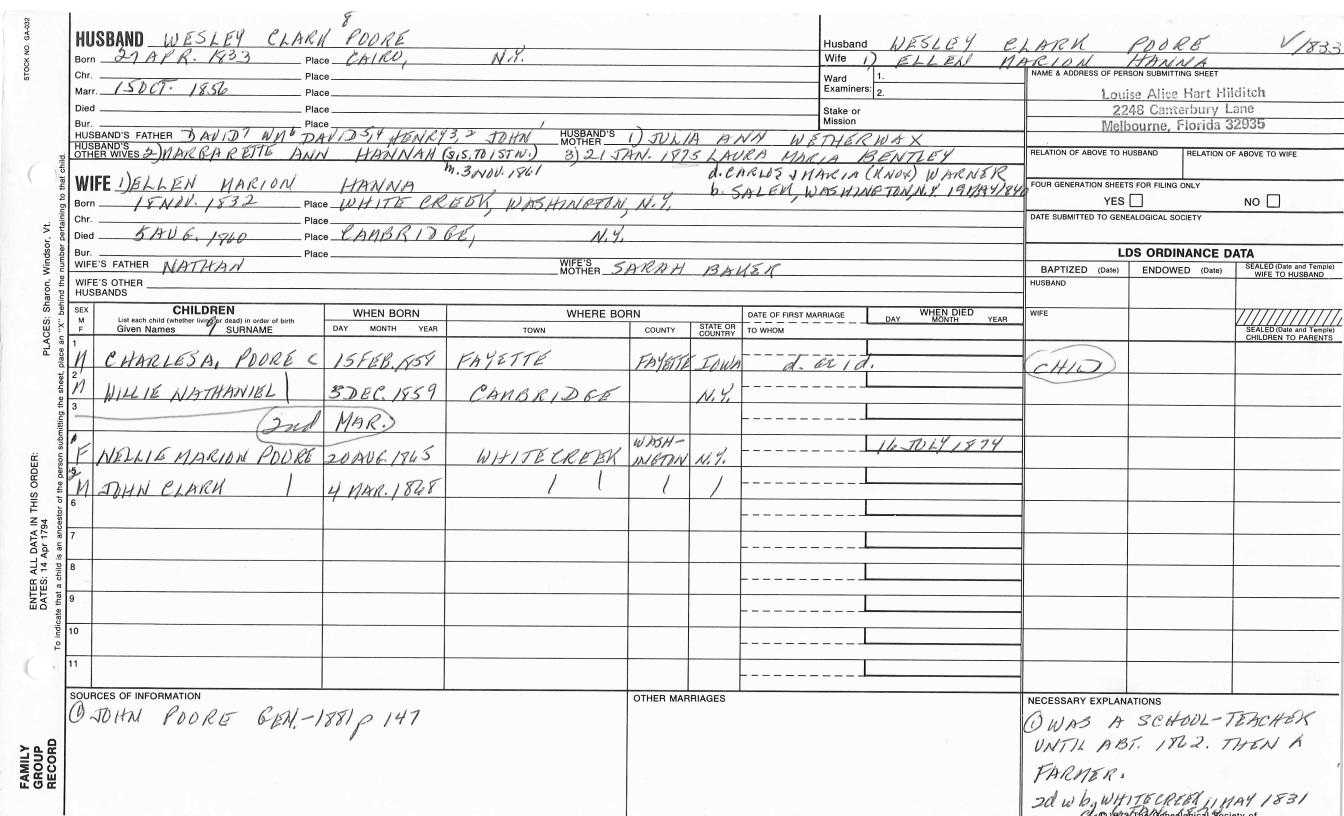 8
HUSBAND WESLEY CLARK POORE
Born 27 APR. 1833 Place CAIRO, N.Y.
Chr. Place
Marr. 15 OCT. 1856 Place
Died Place
Bur. Place
HUSBAND'S FATHER DAVID7 WM6 DAVID5,4 HENRY3,2 JOHN HUSBAND'S MOTHER 1) JULIA ANN WETHERWAX
HUSBAND'S OTHER WIVES 2) MARGARETTE ANN HANNAH (SIS. TO 1ST W.) 3) 21 JAN. 1875 LAURA MARIA BENTLEY
m. 3 NOV. 1861 d. CARLOS & MARIA (KNOX) WARNER
WIFE 1) ELLEN MARION HANNA b. SALEM, WASHINGTON, N.Y. 19 MAY 1840
Born 18 NOV. 1832 Place WHITE CREEK, WASHINGTON, N.Y.
Chr. Place
Died 5 AUG. 1860 Place CAMBRIDGE, N.Y.
Bur. Place
WIFE'S FATHER NATHAN WIFE'S MOTHER SARAH BAKER
WIFE'S OTHER HUSBANDS
Husband WESLEY CLARK POORE V/833
Wife 1) ELLEN MARION HANNA
Ward Examiners: 1.
2.
Stake or Mission
NAME & ADDRESS OF PERSON SUBMITTING SHEET
Louise Alice Hart Hilditch
2248 Canterbury Lane
Melbourne, Florida 32935
RELATION OF ABOVE TO HUSBAND RELATION OF ABOVE TO WIFE
FOUR GENERATION SHEETS FOR FILING ONLY
YES NO
DATE SUBMITTED TO GENEALOGICAL SOCIETY
LDS ORDINANCE DATA
BAPTIZED (Date) ENDOWED (Date) SEALED (Date and Temple) WIFE TO HUSBAND
HUSBAND
WIFE
SEALED (Date and Temple) CHILDREN TO PARENTS
SEX M F CHILDREN List each child (whether living or dead) in order of birth Given Names SURNAME WHEN BORN DAY MONTH YEAR WHERE BORN TOWN COUNTY STATE OR COUNTRY DATE OF FIRST MARRIAGE TO WHOM WHEN DIED DAY MONTH YEAR
1 M CHARLES A. POORE 15 FEB. FAYETTE FAYETTE IOWA CHILD
2 M WILLIE NATHANIEL DEC. 1859 CAMBRIDGE N.Y.
3 2nd MAR.
F NELLIE MARION POORE 20 AUG. 1865 WHITECREEK WASHINGTON N.Y. 16 JULY 1874
M JOHN CLARK 4 MAR. 1868
6
7
8
9
10
11
SOURCES OF INFORMATION
① JOHN POORE GEN.-1881 p 147
OTHER MARRIAGES
NECESSARY EXPLANATIONS
① WAS A SCHOOL-TEACHER
UNTIL ABT. 1862. THEN A
FARMER.
2d w b. WHITECREEK 11 MAY 1831
STOCK NO. GA-032
PLACES: Sharon, Windsor, Vt.
ENTER ALL DATA IN THIS ORDER:
DATES: 14 Apr 1794
To indicate that a child is an ancestor of the person submitting the sheet, place an "X" behind the number pertaining to that child.
FAMILY
GROUP
RECORD